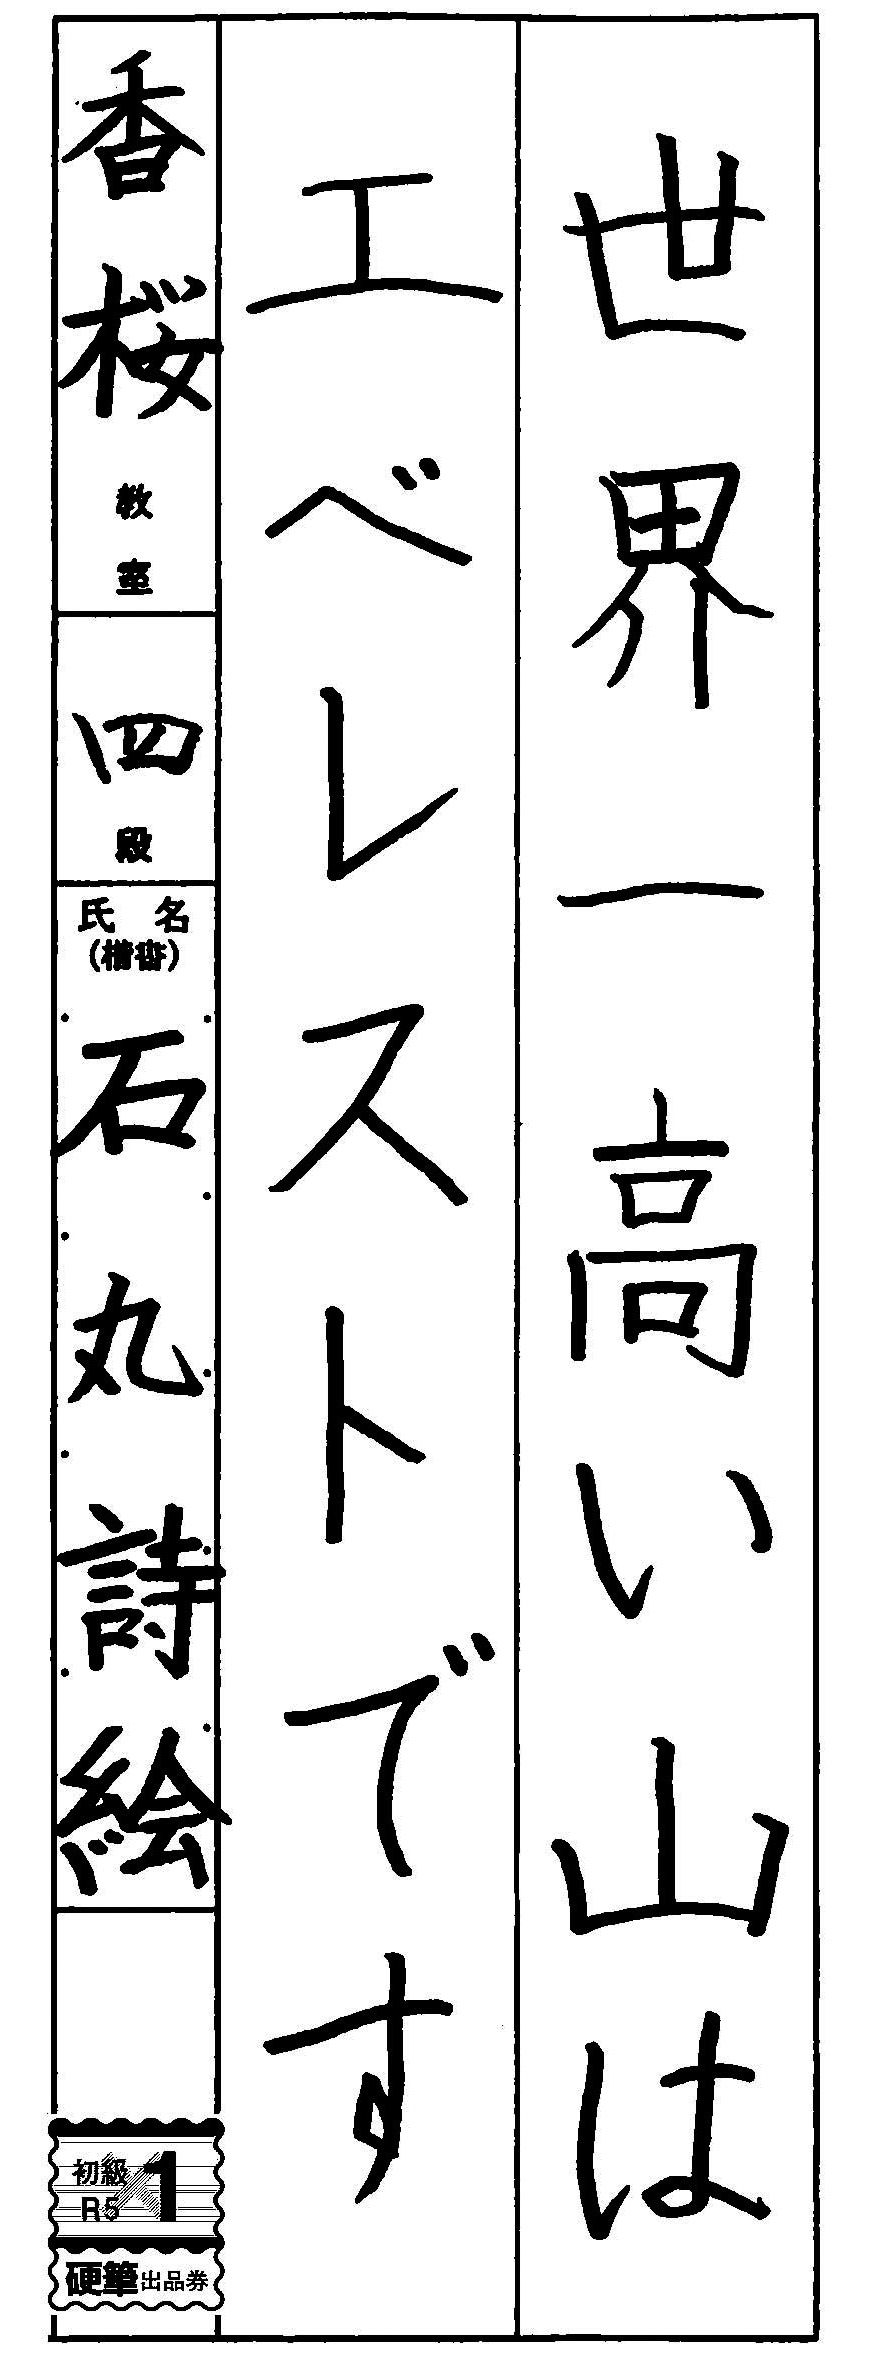 世界一高い山は
エベレストです
香桜教室
四段
氏名
(楷書)
石丸詩絵
初級
R5
1
硬筆出品券